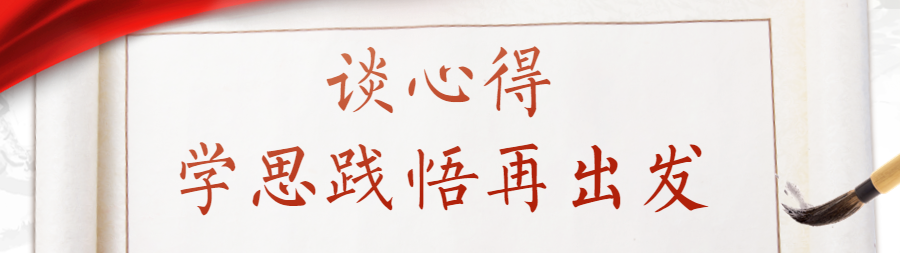 谈心得
学思践悟再出发